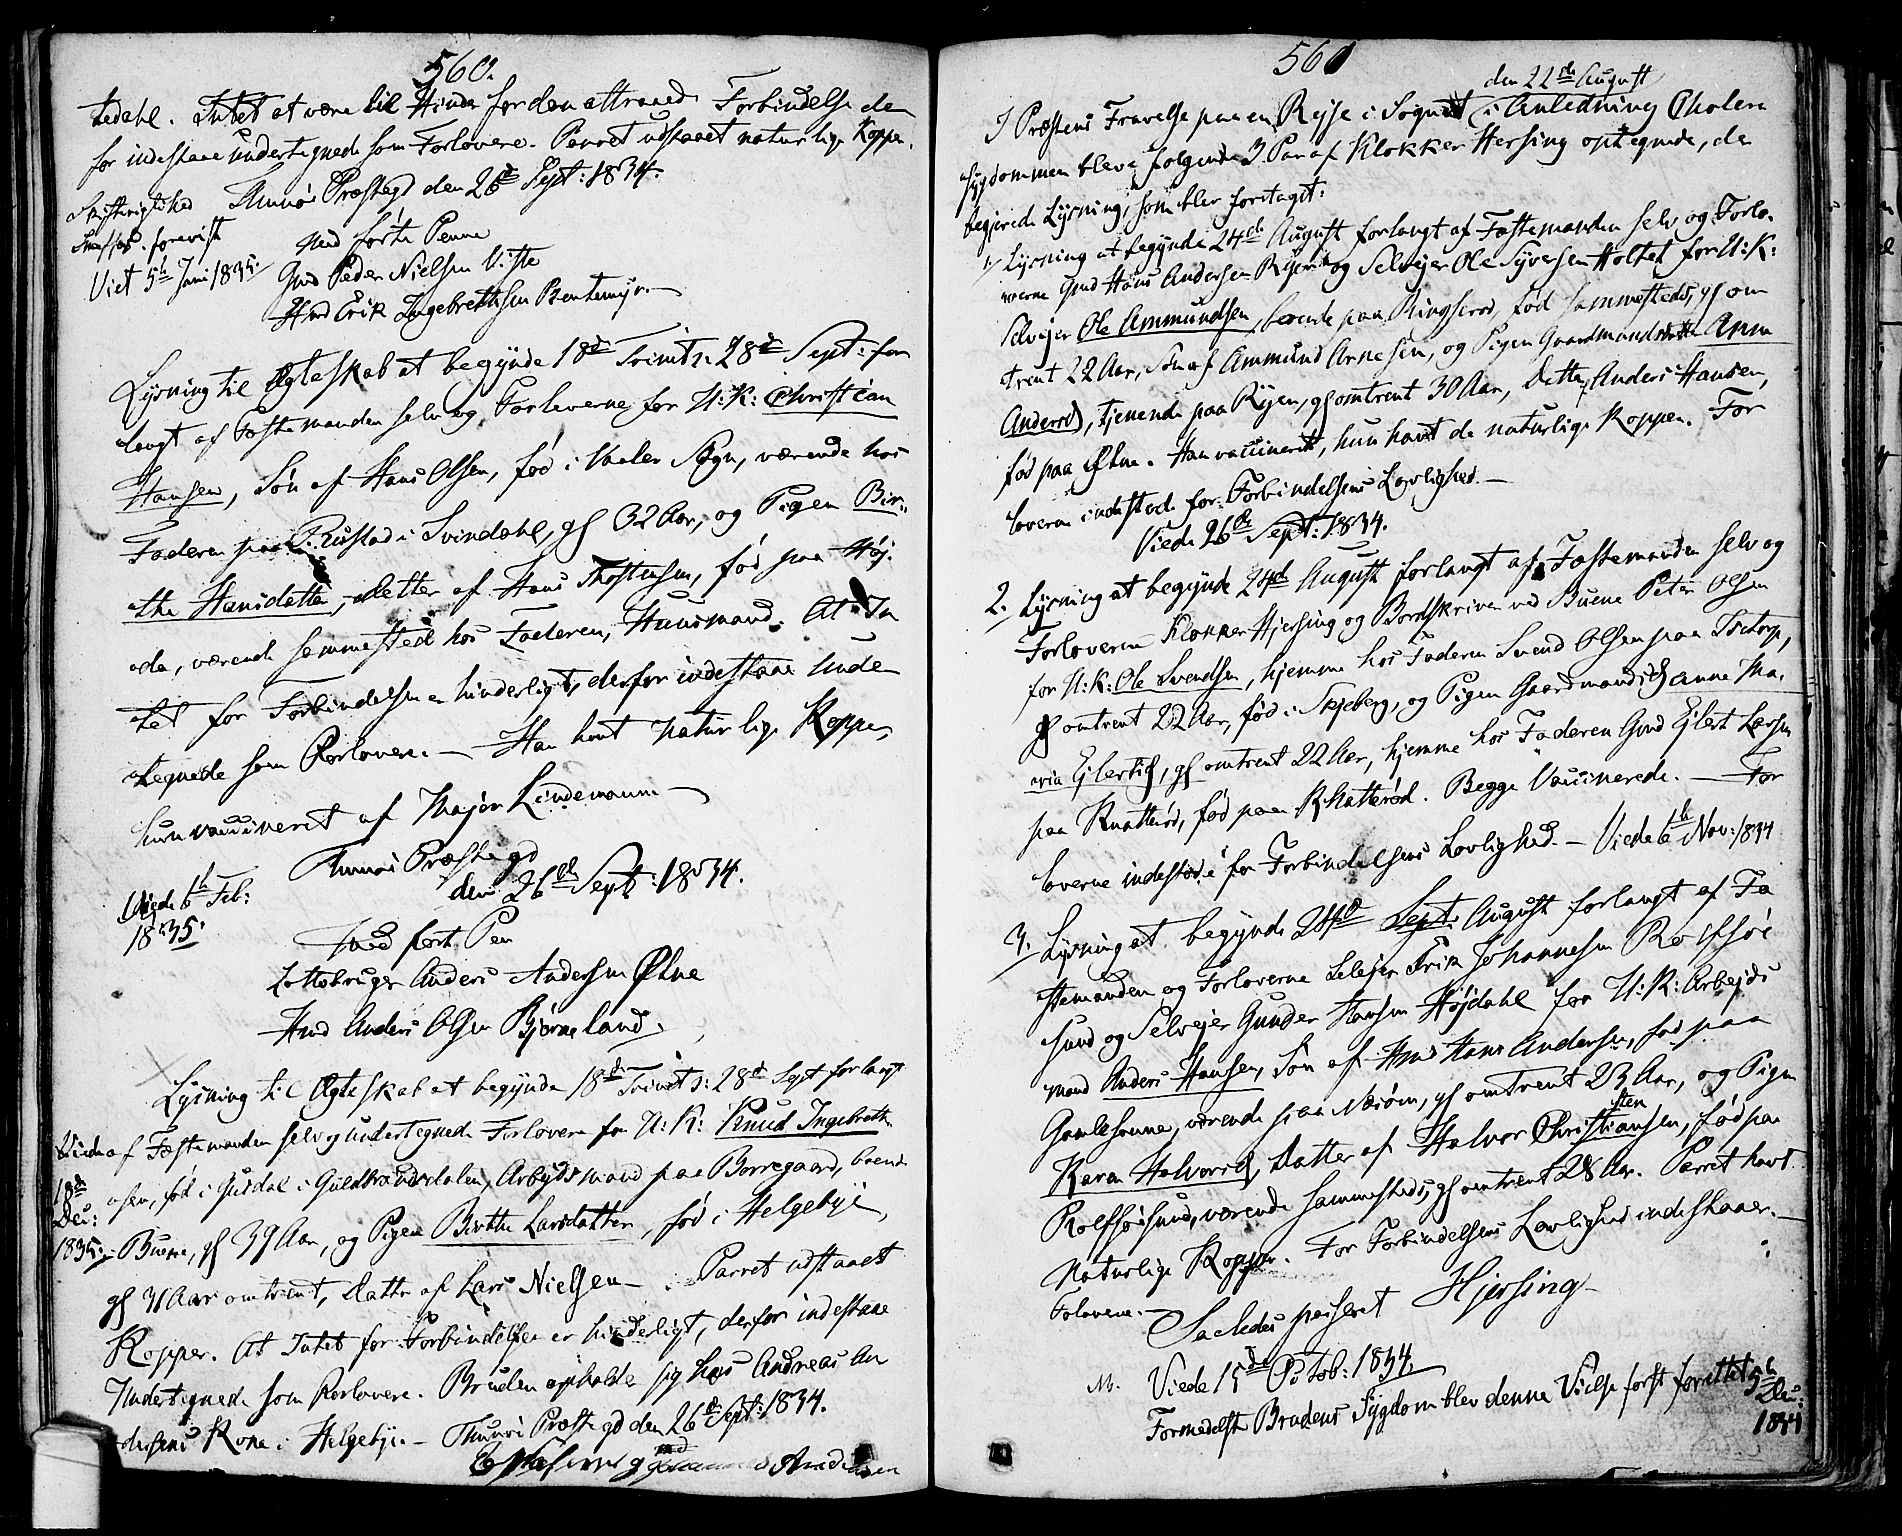 560.
dedahl. Intet at være til Hinder for den attraaede Forbindelse der
for indestaae undertegnede som Forlovere. Parret udstaaet naturlige Kopper.
Thunøe Præstegd den 26de Sept: 1834.
Skifterigtighed
foreviist
Viet 5th Juni 1835.
Med førte Penne
Gmd Peder Nielsen Viste
Hmd Erik Ingebrethsen Bentemyr.
Lysning til Ægteskab at begynde 18de Trinit: 28de Sept: for
langt af Fæstemanden selv og Forloverne for U: K: Christian
Hansen, Søn af Hans Olsen, fød i Vaaler Sogn, værende hos
Faderen paa Rustad i Svindahl, gl 32 Aar, og Pigen Bir-
the Hansdatter, datter af Hans Thostensen, fød paa Høj-
de, værende sammested hos Faderen, Huusmand. At In
tet for Forbindelsen er hinderligt, derfor indestaae Unde
tegnede som Forlovere. — Han havt naturlige Kopper,
hun vaccineret af Major Lindemann —
Thunøi Præstegd
den 26th Sept: 1834.
Viede 6th Feb:
1835.
Med ført Pen
Lottebruger Anders Andersen Øhne
Hmd Anders Olsen Bjørneland.
Lysning til Ægteskab at begynde 18de Trinit: 28de Sept forlangt
af Fæstemanden selv og undertegnede Forlovere for U: K: Knud Ingebreth
Viede
18de
Dec:
1835.
osen, fød i Gusdal i Guldbrandsdalen, Arbejdsmand paa Borregaard, boende
Buene, gl 39 Aar, og Pigen Birthe Larsdatter, fød i Helgebye,
gl 31 Aar omtrent, Datter af Lars Nielsen — Parret udstaaet
Kopper. At Intet for Forbindelsen er hinderligt, derfor indestaae
Undertegnede som Forlovere. Bruden opholder sig hos Andreas An
dersens Kone i Helgebye. — Thunøi Præstegd den 26de Sept: 1834.
561
den 22de August
I Præstens Fraværelse paa en Rejse i Sognet i Anledning Cholera
sygdommen bleve følgende 3 Par af Klokker Hersing optegnede, de
begjerede Lysning, som blev foretaget:
1/ Lysning at begynde 24de August forlangt af Fæstemanden selv og Forlo-
verne Gmd Hans Andersen Ryen og Selvejer Ole Syversen Holtet for U: K:
Selvejer Ole Ammundsen, boende paa Ringserød, fød sammesteds, gl om
trent 22 Aar, Søn af Ammund Arnesen, og Pigen Gaardmandsdatter Anne
Andersd, tjenende paa Ryen, gl omtrent 30 Aar, Datter Anders Hansen,
fød paa Øhne. Han vaccineret, hun havt de naturlige Kopper. For
loverne indestod for Forbindelsens Lovlighed. —
Viede 26th Sept: 1834.
2. Lysning at begynde 24de August forlangt af Fæstemanden selv og
Forloverne Klokker Hjersing og Bordskriver ved Buene Peter Olsen
for U: K: Ole Svendsen, hjemme hos Faderen Svend Olsen paa Torp,
gl omtrent 22 Aar, fød i Skjeberg, og Pigen Gaardmandsd Anne Ma-
ria Ejlertsd, gl omtrent 22 Aar, hjemme hos Faderen Gmd Ejlert Larsen
paa Knatterød, fød paa Khatterød. Begge Vaccinerede. — For
loverne indestode for Forbindelsens Lovlighed. — Viede 6th Nov: 1834
3. Lysning at begynde 24de Sept. August forlangt af Fæ
stemanden og Forloverne Selejer Erik Johannesen Rolfsøe
sund og Selvejer Gunder Hansen Højdahl for U: K: Arbejds
mand Anders Hansen, Søn af Hmd Hans Andersen, fød paa
værende paa Næsøen, gl omtrent 23 Aar, og Pigen
Karen Halvorsd, Datter af Halvor Christiansen, fød paa
sten
Rolfsøesund, værende sammesteds, gl omtrent 28 Aar. Parret havt
Naturlige Kopper. For Forbindelsens Lovlighed indestaaer —
Folovere. —
Saaledes passeret Hjersing
Viede 15de Octob: 1834.
Formedelst Brudens Sygdom blev denne Vielse først forrettet 5th
Dec:
1834